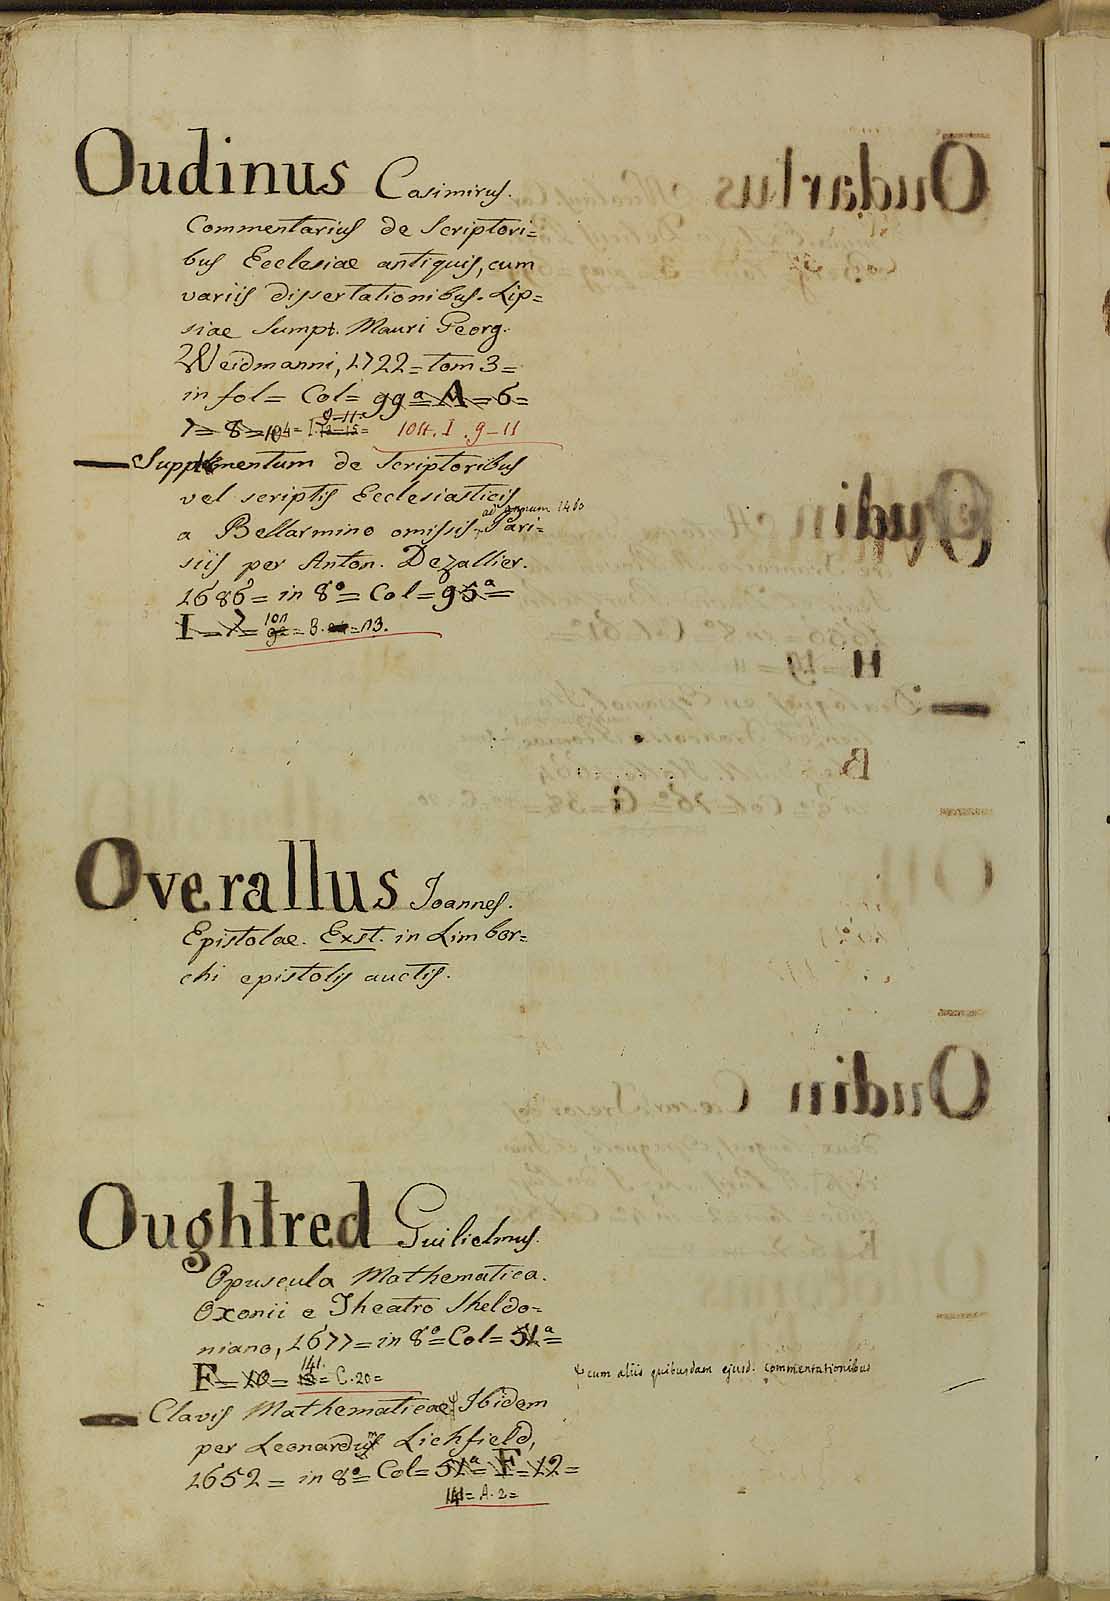 Oudinus Casimirus.
Commentarius de Scriptori=
bus Ecclesiae antiquis, cum
variis dissertationibus. Lip=
siae Sumpt. Mauri Georg.
Weidmanni, 1722= tom 3=
in fol= Col= 99ª= A=6=
7= 8=104= I. 9-11. 12-15= 104. I. 9-11
Supplementum de Scriptoribus
vel scriptis Ecclesiasticis
ad annum 1460
a Bellarmino omissis. Pari=
siis per Anton. Dezallier.
1686= in 8º= Col= 95ª=
I=7= 101 = B. =13.
Overallus Joannes.
Epistolae. Exst. in Limbor=
chi epistolis auctis.
Oughtred Guilielmus.
Opuscula Mathematica.
Oxonii e Theatro Sheldo=
niano, 1677= in 8º= Col= 51ª=
F=10= 141. = C.20=
Clavis Mathematicae ⚹ Ibidem
⚹ cum aliis quibusdam ejusd. commentationibus
per Leonardum Lichfield,
1652= in 8º= Col= 51ª= F=12=
141= A.2=